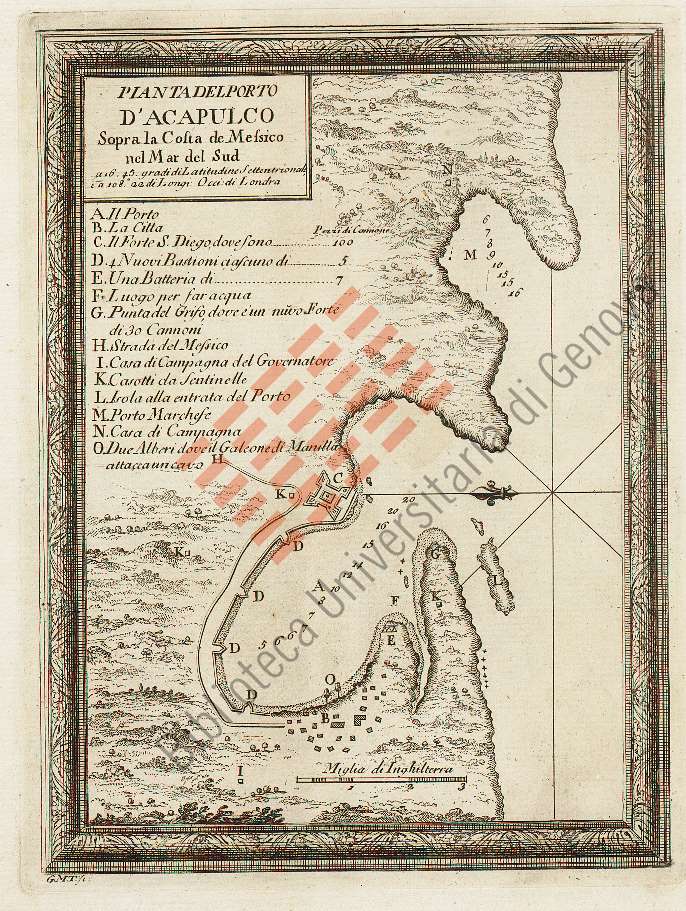 PIANTA DEL PORTO
D'ACAPULCO
Sopra la Costa de Messico
nel Mar del Sud
a 16. 45. gradi di Latitudine Settentrionale
e a 108.° 22 di Longi: Occi: di Londra
A. Il Porto
B. La Citta
Pezzi di Cannone
C. Il Forte S. Diego, dove sono 100
D. 4 Nuovi Bastioni ciascuno di 5
E. Una Batteria di 7
F. Luogo per far acqua
G. Punta del Grifo, dove è un nuovo Forte
di 30 Cannoni
H. Strada del Messico
I. Casa di Campagna del Governatore
K. Casotti da Sentinelle
L. Isola alla entrata del Porto
M. Porto Marchese
N. Casa di Campagna
O. Due Alberi dove il Galeone di Manilla
attacca un cavo
N
6
7
8
M 9
10
13
15
16
H
K
C
20
20
16
15
14
13
10
8
7
6
6
6
5
K
D
D
D
D
A
G
L
K
F
E
O
B
I
Miglia di Inghilterra
1 2 3
Biblioteca Universitaria di Genova